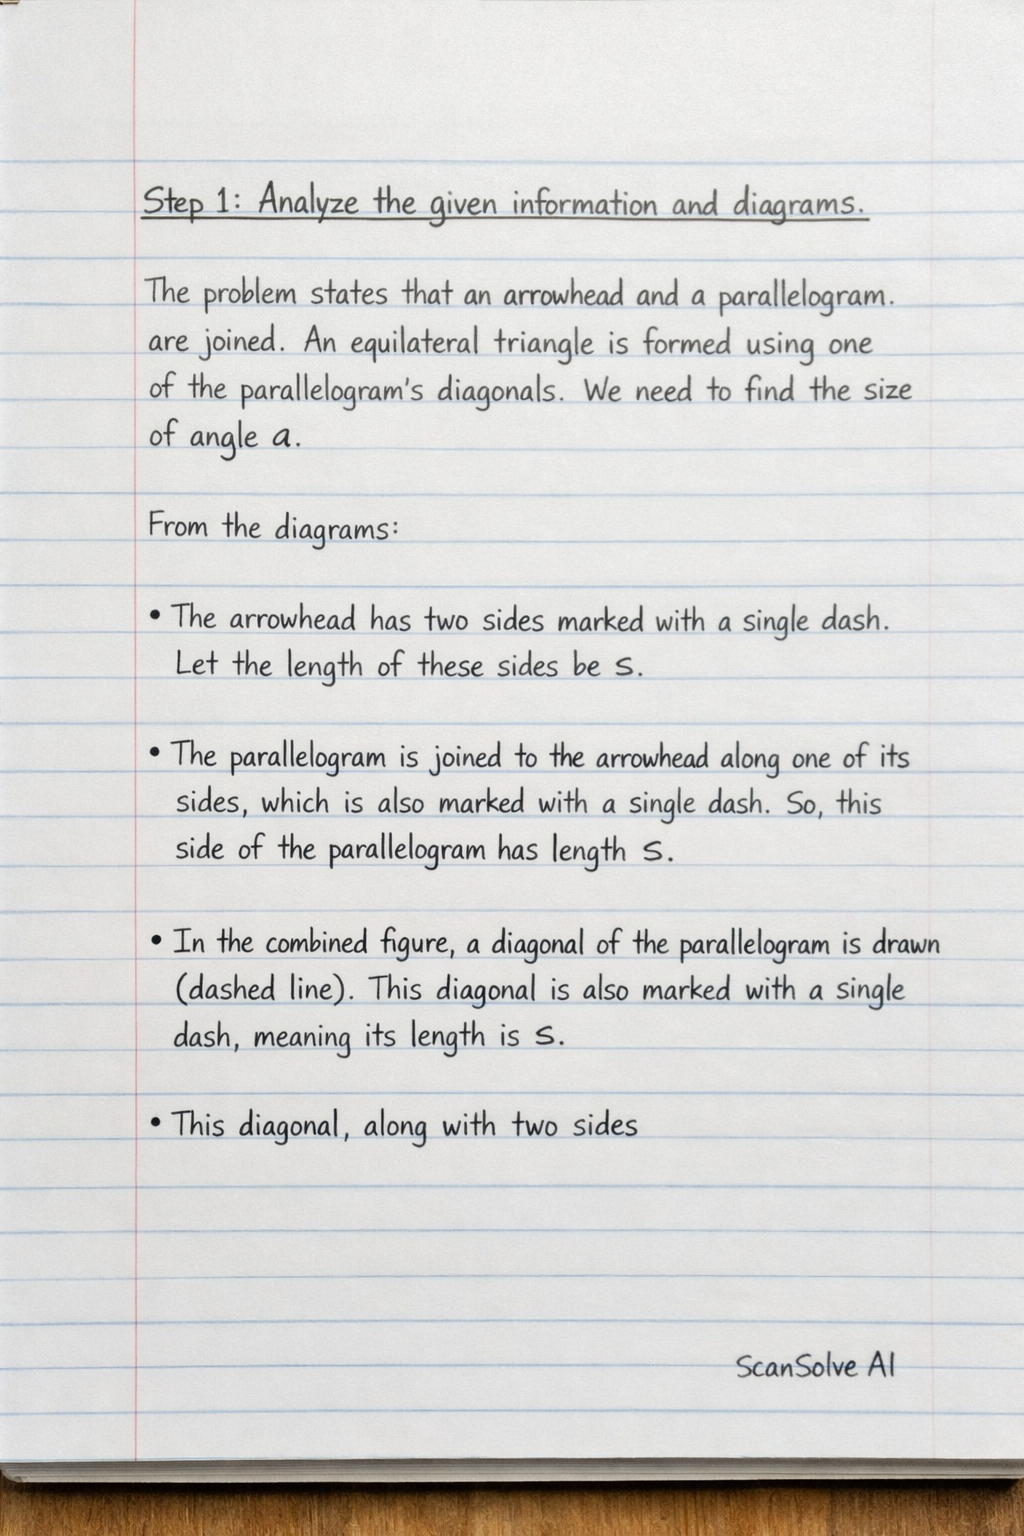 Step 1: Analyze the given information and diagrams.
The problem states that an arrowhead and a parallelogram.
are joined. An equilateral triangle is formed using one
of the parallelogram's diagonals. We need to find the size
of angle a.
From the diagrams:
• The arrowhead has two sides marked with a single dash.
Let the length of these sides be s.
• The parallelogram is joined to the arrowhead along one of its
sides, which is also marked with a single dash. So, this
side of the parallelogram has length s.
• In the combined figure, a diagonal of the parallelogram is drawn
(dashed line). This diagonal is also marked with a single
dash, meaning its length is s.
• This diagonal, along with two sides
ScanSolve AI